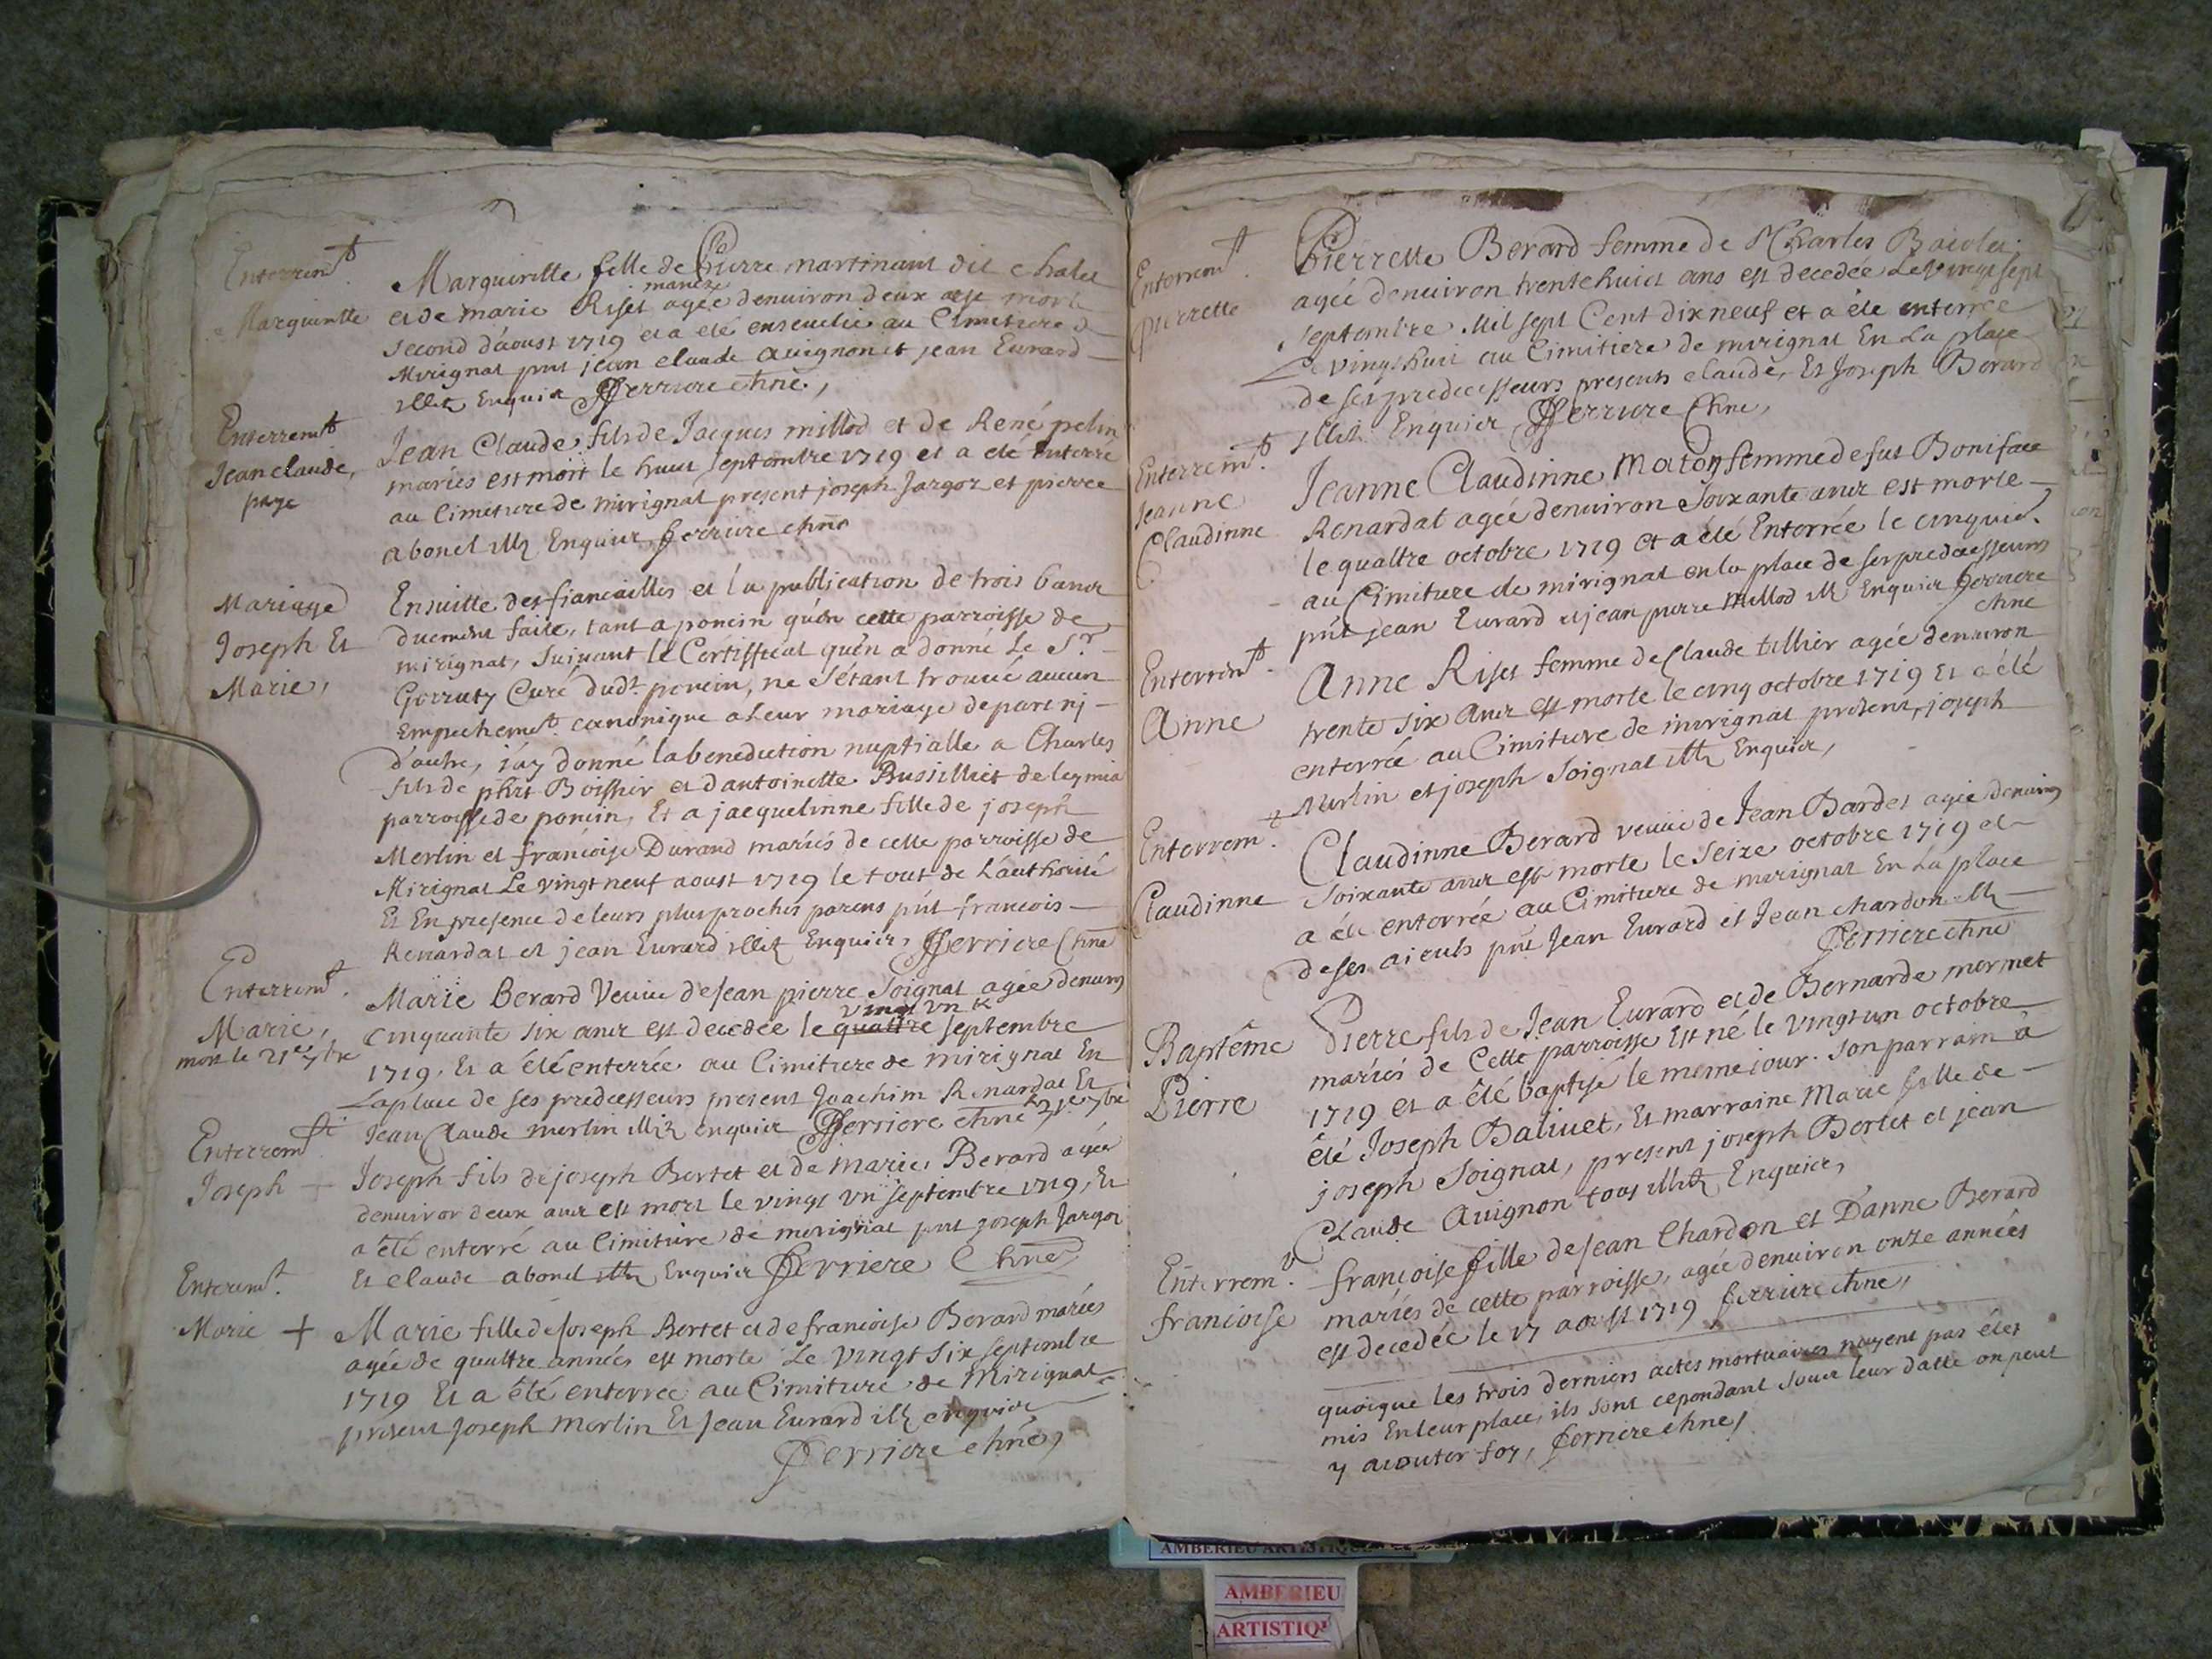 Enterrem.t
Marguiritte
Marguiritte fille de Pierre martinant dit chalet
et de marie Riset mariez agée denuiron deux ans morte
second d'áoust 1719 et a été enseuelie au Cimetiere de
Mirignat pnt jean claude auignon et jean Eurard
illit Enquis Fferriere chne,
Enterremt
Jean claude,
page
Jean Claude, fils de Jacques millod et de René pelin
mariés est mort le huict septembre 1719 et a été enterré
au Cimetiere de mirignat present joseph Jargot et pierre
abonel illit Enquier fferriere chne
Mariage
Joseph Et
Marie,
Ensuitte des fiancailles et la publication de trois bancs
duement faite, tant a poncin qu'én cette parroisse de
mirignat, Suiuant le Certifficat qu'én a donné Le Sr
Gorraty Curé dudt poncin, ne S'étant trouué aucun
Empechemt canonique a Leur mariage de part nj
d'autre, j'áy donné la benediction nuptialle a Charles
fils de phit Boissier et dantoinette Bussilliet de leymia
parroisse de poncin, Et a jacquelinne fille de joseph
Merlin et francoise Durand mariés de cette parroisse de
Mirignat Le vingt neuf aoust 1719 le tout de L'authorité
Et En presence de leurs plus proches parens pnt francois
Renardat et jean Eurard illit Enquier, Fferriere Chne
Enterremt.
Marie,
mort le 21e 7bre
Marie Berard Veuue de Jean pierre Soignat agée denuiron
Cinquante six ans est decedée le quattre vingt vn septembre
1719. Et a été enterrée au Cimetiere de mirignat En
La place de ses predecesseurs present Joachim Renardat Et
Jean Claude merlin illit enquier Fferriere chne 21e 7bre
Enterremt
Joseph +
Joseph fils de joseph Bertet et de marie, Berard agée
denuiron deux ans est mort le vingt vn septembre 1719, Et
a été enterré au Cimitiere de merignat pnt joseph Jargot
Et claude abonel illit Enquier Fferriere Chne
Enteremt.
Marie +
Marie fille de Joseph Bertet et de francoise Berard mariés
agée de quattre années est morte Le vingt six septembre
1719 Et a été enterrée au Cimitiere de Mirignat
present Joseph Merlin Et Jean Eurard illit enquier
Fferriere chne,
Enterremt.
pierrette
Pierrette Berard femme de Charles
agée denuiron trente huict ans est decedée Le vingt sept
septembre Mil sept Cent dix neuf et a éte enterrée
Le vingt huit au Cimitiere de mirignat En La place
de ses predecesseurs presents claude, Et Joseph Berard
illit Enquier Fferriere Chne,
Enterremt.
Jeanne
Claudinne
Jeanne Claudinne Maton femme de fut Boniface
Renardat agée denuiron Soixante ans est morte
le quattre octobre 1719 et a été Enterrée le cinquie.
au Cimitiere de mirignat en la place de ses predecesseurs
pnt jean Eurard et jean pierre Millod ill Enquier fferriere
chne
Enterremt.
Anne
Anne Riset femme de Claude tillier agée denuiron
trente six ans est morte le cinq octobre 1719 Et a été
enterrée au Cimitiere de mirignat present, joseph
Merlin et joseph Soignat illit Enquier,
Enterrem.t
Claudinne
Claudinne Berard veuue de Jean Bardet agée denuiron
Soixante ans est morte le Seize octobre 1719 et
a été enterrée au Cimitiere de mirignat En La place
de ses aieuls pnt Jean Eurard et Jean chardon ill
Fferriere chne
Baptême
Pierre
Pierre fils de Jean Eurard et de Bernarde mermet
mariés de Cette parroisse Est né le vingt un octobre
1719 et a été baptisé le meme jour. Son parrain à
été Joseph Baliuet, Et marraine Marie fille de
joseph Soignat, present joseph Bertet et jean
Claude Auignon tous illit Enquier,
Enterremt.
francoise
françoise fille de Jean Chardon et D'anne Berard
mariés de cette parroisse, agée denuiron onze années
est decedée le 17 aoust 1719 fferriere chne,
quoique les trois derniers actes mortuaires nayent pas étés
mis En leur place, ils sont cependant sous leur datte on peut
y aiouter foy, fferriere chne,
AMBERIEU ARTISTIQUE
AMBERIEU
ARTISTIQU